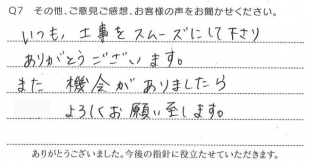 Q7 その他、ご意見ご感想、お客様の声をお聞かせください。
いつも、工事をスムーズにして下さり
ありがとうございます。
また 機会がありましたら
よろしくお願い至します。
ありがとうございました。今後の指針に役立たせていただきます。